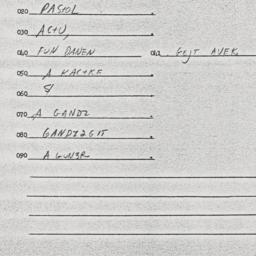 020 PASKOL.
030 ACHU,
040 FUN DANEN 042 GEJT AVEK.
050 A KACHKE.
060 SI
070 A GANDZ.
080 GANDZ2G IT.
090 A GUN3R.